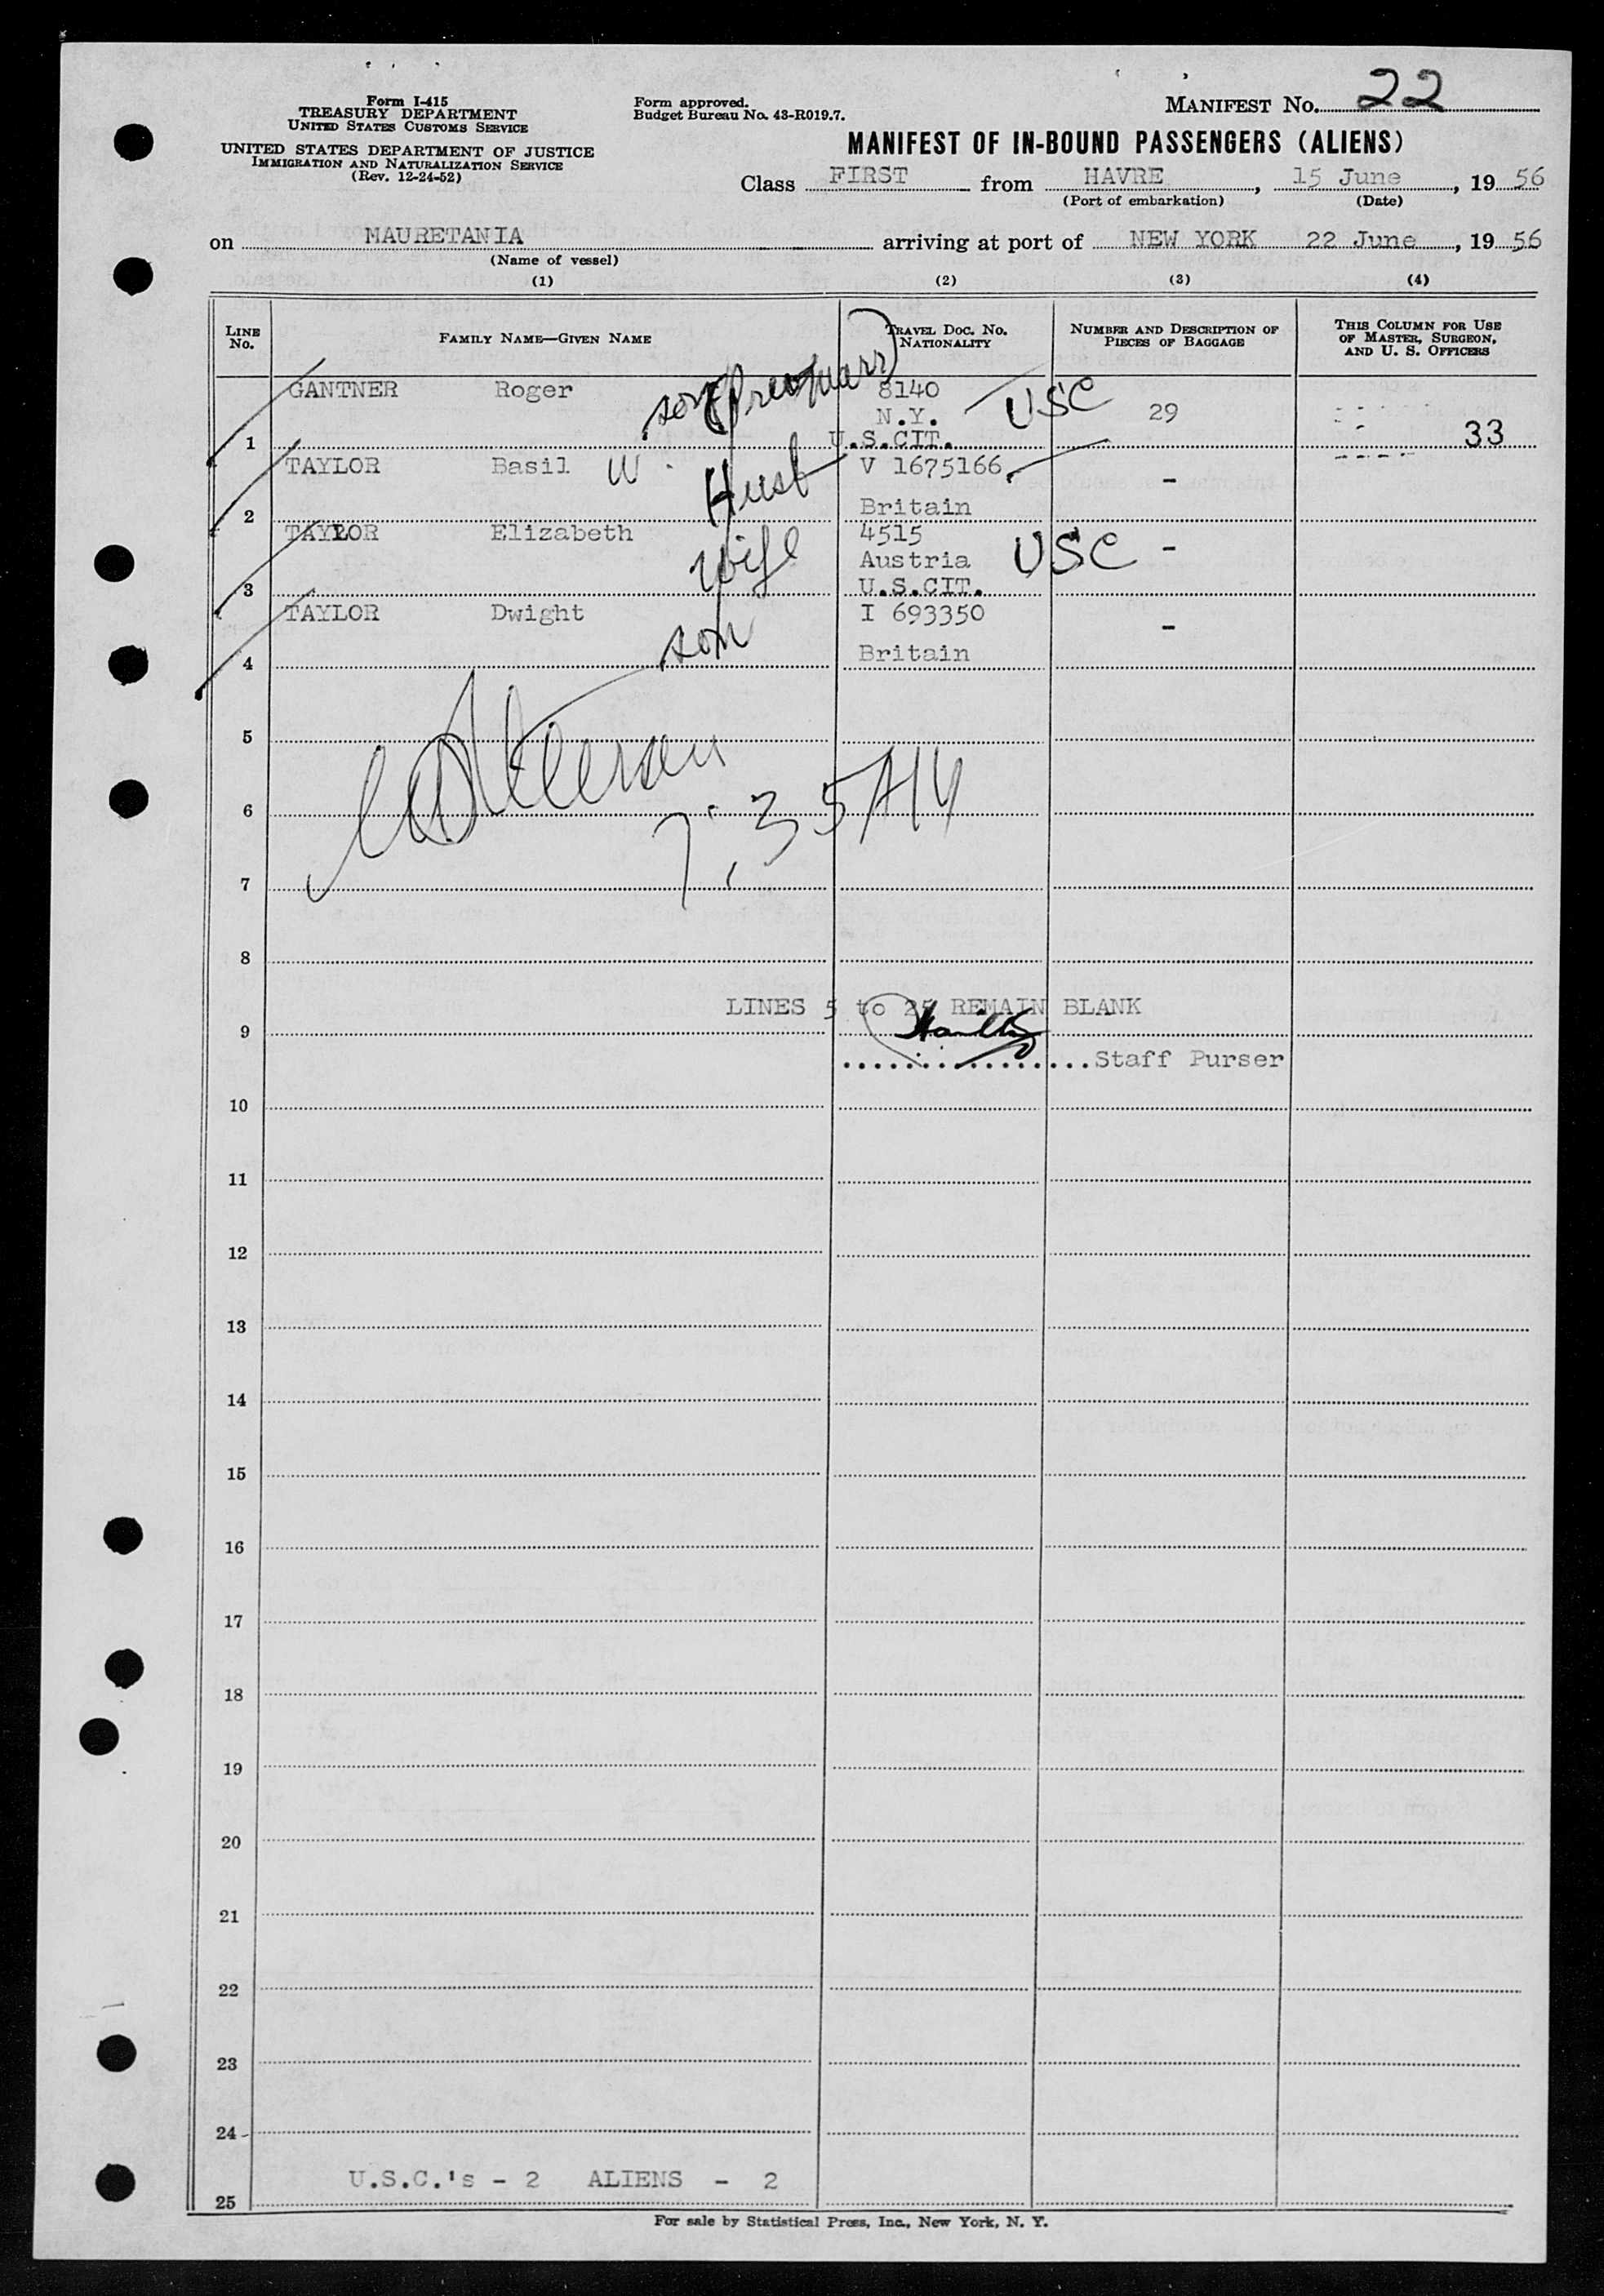 Form I-415
TREASURY DEPARTMENT
UNITED STATES CUSTOMS SERVICE
UNITED STATES DEPARTMENT OF JUSTICE
IMMIGRATION AND NATURALIZATION SERVICE
(Rev. 12-24-52)
Form approved.
Budget Bureau No. 43-R019.7.
MANIFEST No. 22
MANIFEST OF IN-BOUND PASSENGERS (ALIENS)
Class FIRST from HAVRE, 15 June, 19 56
(Port of embarkation) (Date)
on MAURETANIA arriving at port of NEW YORK 22 June, 19 56
(Name of vessel)
(1) (2) (3) (4)
LINE No. FAMILY NAME—GIVEN NAME TRAVEL DOC. No. NATIONALITY NUMBER AND DESCRIPTION OF PIECES OF BAGGAGE THIS COLUMN FOR USE OF MASTER, SURGEON, AND U. S. OFFICERS
GANTNER Roger son (prev marr) 8140 USC 29
N.Y.
1 U.S.CIT. 33
TAYLOR Basil W. Husb V 1675166 -
2 Britain
TAYLOR Elizabeth wife 4515 -
Austria USC
3 U.S.CIT.
TAYLOR Dwight son I 693350 -
4 Britain
5
6
7:35 AM
7
8
LINES 5 to 25 REMAIN BLANK
9
................Staff Purser
10
11
12
13
14
15
16
17
18
19
20
21
22
23
24
U.S.C.'s - 2 ALIENS - 2
25
For sale by Statistical Press, Inc., New York, N. Y.